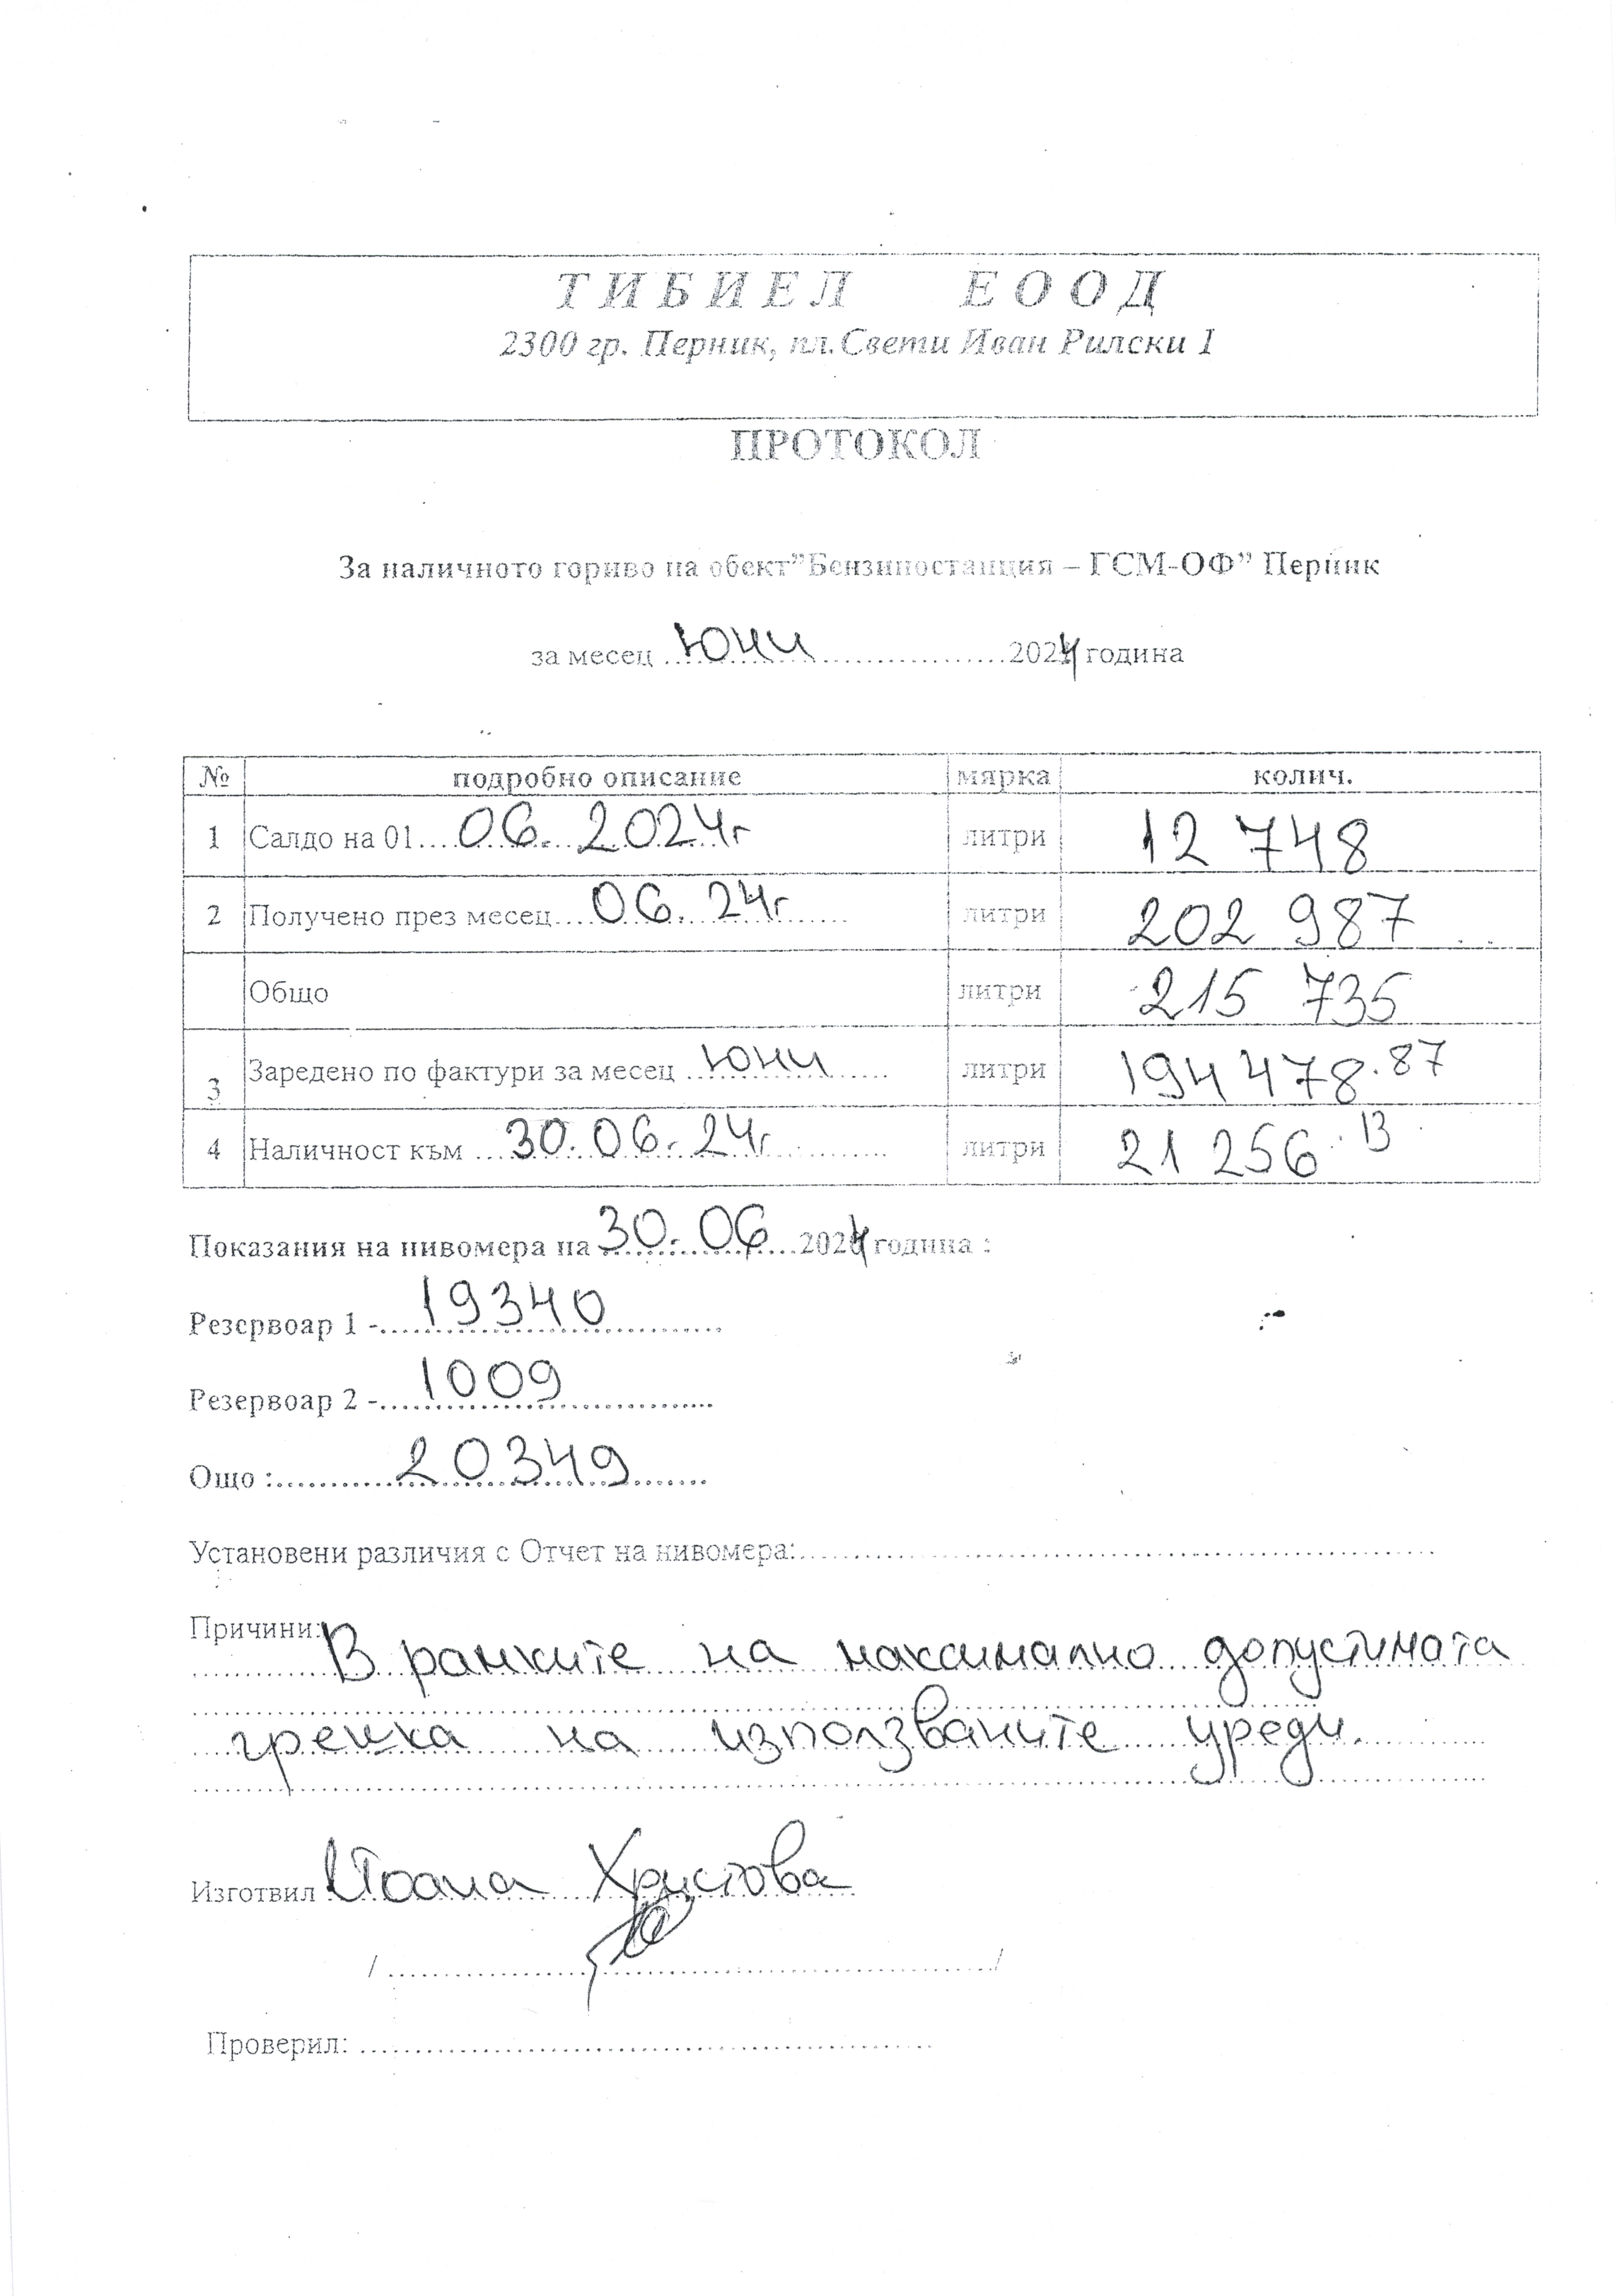 ТИБИЕЛ ЕООД
2300 гр. Перник, пл.Свети Иван Рилски 1
ПРОТОКОЛ
За наличното гориво на обект"Бензиностанция – ГСМ-ОФ" Перник
за месец ...Юни...2024 година
№ подробно описание мярка колич.
1 Салдо на 01....06. 2024г литри 12 748
2 Получено през месец....06. 24г...... литри 202 987
Общо литри 215 735
3 Заредено по фактури за месец ...Юни...... литри 194 478.87
4 Наличност към ...30.06.24г.......... литри 21 256.13
Показания на нивомера на 30.06...2024 година :
Резервоар 1 -....19340..........
Резервоар 2 -....1009..........
Ощо :..........20349........
Установени различия с Отчет на нивомера:..........
Причини:
В рамките на максимално допустимата
грешка на използваните уреди.
Изготвил Йоана Христова
/ ..................../
Проверил: ....................